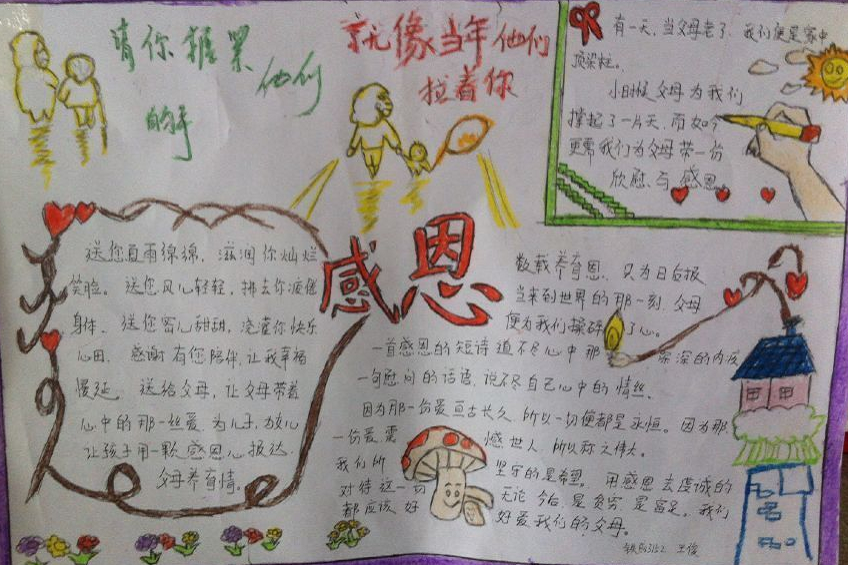 请你握紧
他们
的手
就像当年他们
拉着你
有一天,当父母老了,我们便是家中
顶梁柱。
小时候父母为我们
撑起了一片天,而如今
更需我们为父母带一份
欣慰与感恩。
感恩
送您夏雨绵绵,滋润你灿烂
笑脸。送您风儿轻轻,拂去你疲倦
身体。送您窖心甜甜,浇灌你快乐
心田。感谢有您陪伴,让我幸福
慢延。送给父母,让父母带着
心中的那一丝爱。为儿子放心
让孩子用一颗感恩心报达
父母养育情。
数载养育恩,只为日后报
当来到世界的那一刻,父母
便为我们操碎了心。
一首感恩的短诗道不尽心中那深深的内疚
一句慰问的话语,说不尽自己心中的情丝。
因为那一份爱亘古长久,所以一切便都是永恒。因为那
一份爱震憾世人,所以称之伟大。
我们所坚守的是希望。用感恩去虔诚的
对待这一切无论今后是贫穷是富足,我们
都应该好好爱我们的父母。
王俊